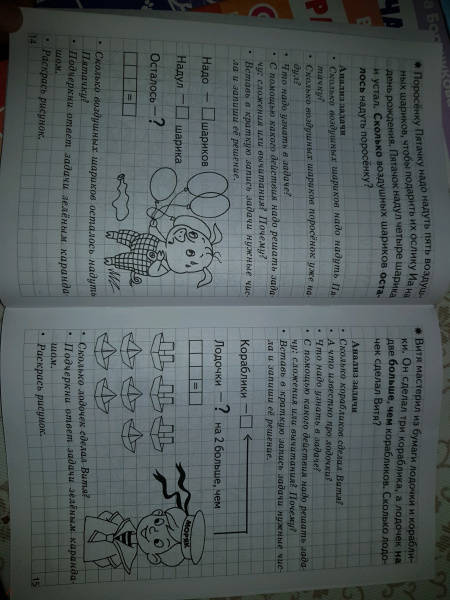 • Поросёнку Пятачку надо надуть пять воздуш-
ных шариков, чтобы подарить их ослику Иа на
день рождения. Пятачок надул четыре шарика
и устал. Сколько воздушных шариков оста-
лось надуть поросёнку?
Анализ задачи
• Сколько воздушных шариков надо надуть Пя-
тачку?
• Сколько воздушных шариков поросёнок уже на-
дул?
• Что надо узнать в задаче?
• С помощью какого действия надо решать зада-
чу: сложения или вычитания? Почему?
• Вставь в краткую запись задачи нужные чис-
ла и запиши её решение.
Надо — шариков
Надул — шарика
Осталось — ?
=
• Сколько воздушных шариков осталось надуть
Пятачку?
• Подчеркни ответ задачи зелёным каранда-
шом.
• Раскрась рисунок.
14
• Витя мастерил из бумаги лодочки и корабли-
ки. Он сделал три кораблика, а лодочек на
две больше, чем корабликов. Сколько лодо-
чек сделал Витя?
Анализ задачи
• Сколько корабликов сделал Витя?
• А что известно про лодочки?
• Что надо узнать в задаче?
• С помощью какого действия надо решать зада-
чу: сложения или вычитания? Почему?
• Вставь в краткую запись задачи нужные чис-
ла и запиши её решение.
Кораблики —
Лодочки — ? на 2 больше, чем
=
МОРЯК
• Сколько лодочек сделал Витя?
• Подчеркни ответ задачи зелёным каранда-
шом.
• Раскрась рисунок.
15